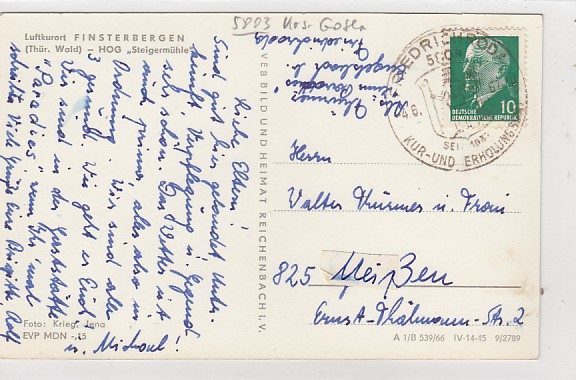 5803 Krs. Gotha
Luftkurort FINSTERBERGEN
(Thür. Wald) — HOG „Steigermühle"
Liebe Eltern!
Sind gut hier gelandet. Unter-
kunft, Verpflegung u. Gegend
sehr schön. Das Wetter ist
prima, alles also in
Ordnung. Wir sind alle
3 gesund. Wie geht es Euch?
Wir sind in der Gaststätte
„Paradies",
schreibt. Viele Grüße Eure Brigitte, Rolf
u. Michael!
Foto: Krieg, Jena
EVP MDN -,15
VEB BILD UND HEIMAT REICHENBACH I. V.
FRIEDRICHRODA
KUR- UND ERHOLUNGS
SEIT
10
DEUTSCHE
DEMOKRATISCHE REPUBLIK
Herrn
Walter Thürmer u. Frau
825 Meißen
Ernst-Thälmann-Str. 2
A 1/B 539/66 IV-14-45 9/2789